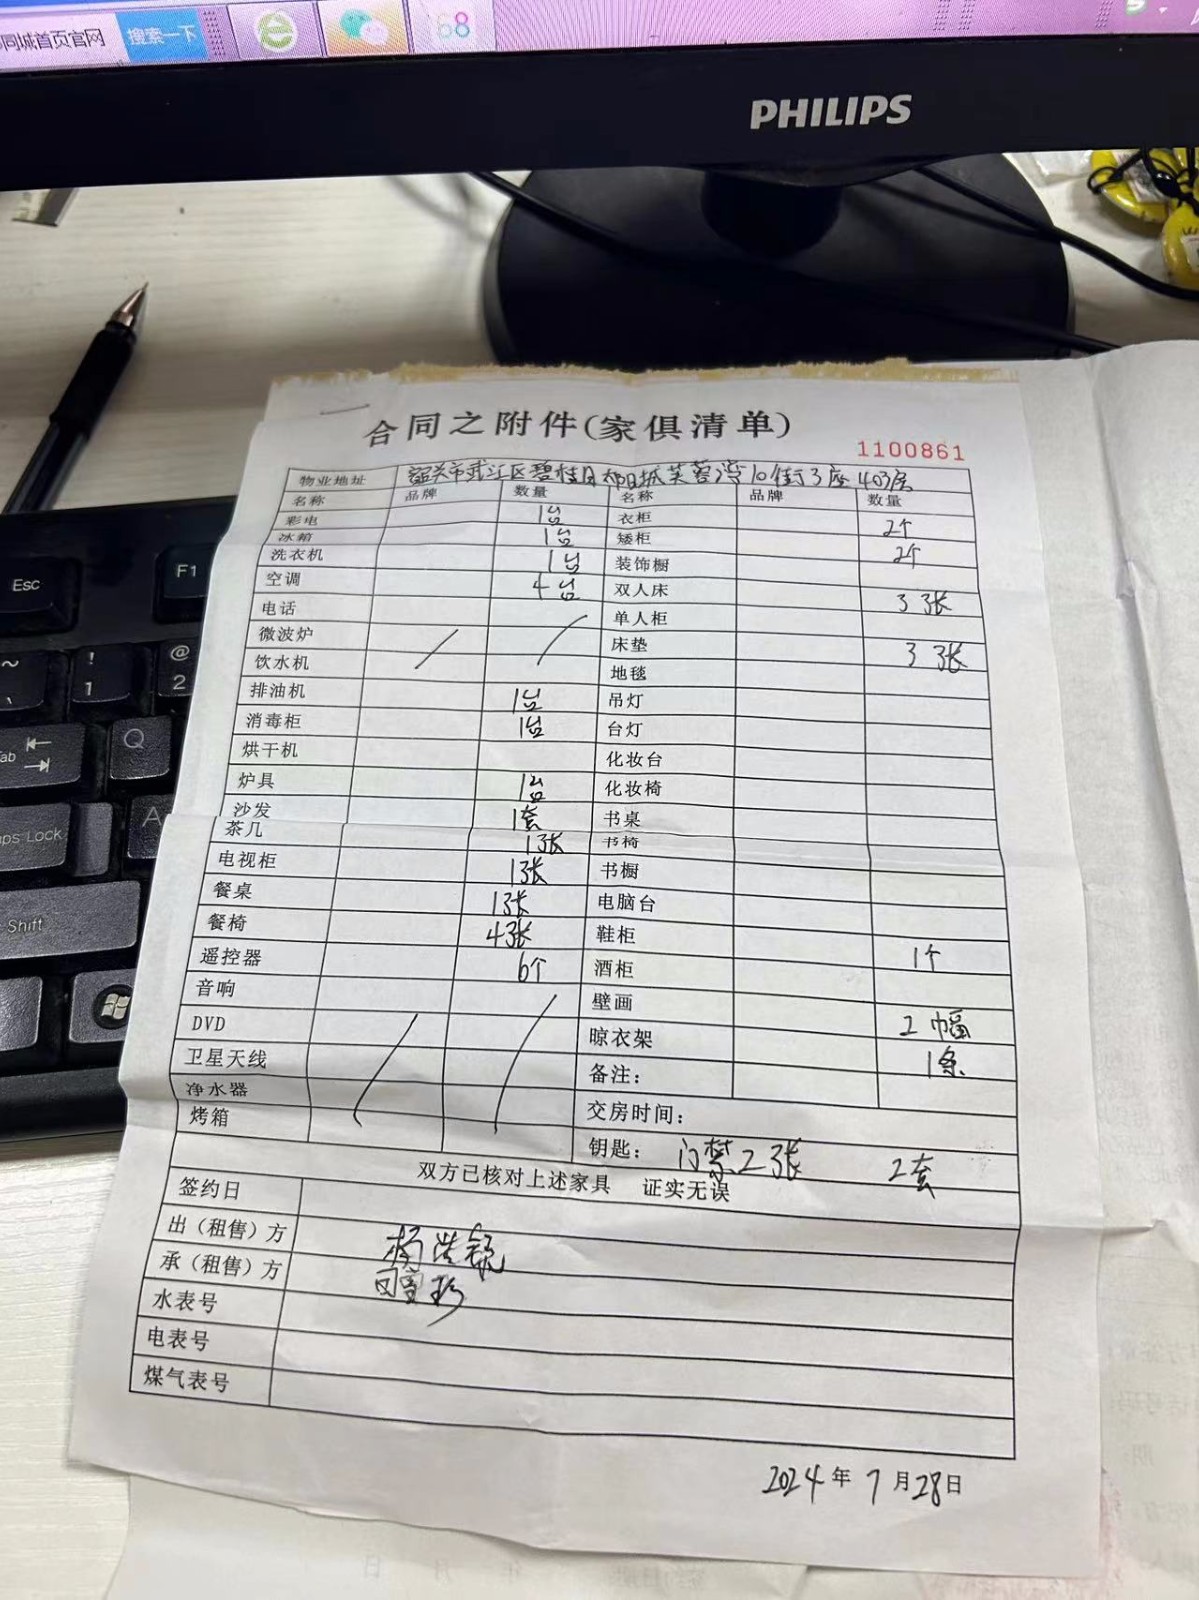 同城首页官网 搜索一下 68
PHILIPS
合同之附件(家俱清单)
1100861
物业地址 韶关市武江区碧桂园太阳城芙蓉湾10街3座403房
名称 品牌 数量 名称 品牌 数量
彩电 1台 衣柜 2个
冰箱 1台 矮柜 2个
洗衣机 1台 装饰橱
空调 4台 双人床 3张
电话 单人柜
微波炉 床垫 3张
饮水机 地毯
排油机 1台 吊灯
消毒柜 1台 台灯
烘干机 化妆台
炉具 1台 化妆椅
沙发 1套 书桌
茶几 1张 书椅
电视柜 1张 书橱
餐桌 1张 电脑台
餐椅 4张 鞋柜 1个
遥控器 6个 酒柜
音响 壁画 2幅
DVD 晾衣架 1条
卫星天线 备注:
净水器 交房时间:
烤箱 钥匙: 门禁2张 2套
双方已核对上述家具 证实无误
签约日
出(租售)方 杨
承(租售)方
水表号
电表号
煤气表号
2024年7月28日
Esc F1
~ ! 1 @ 2
Tab Q
Caps Lock A
Shift